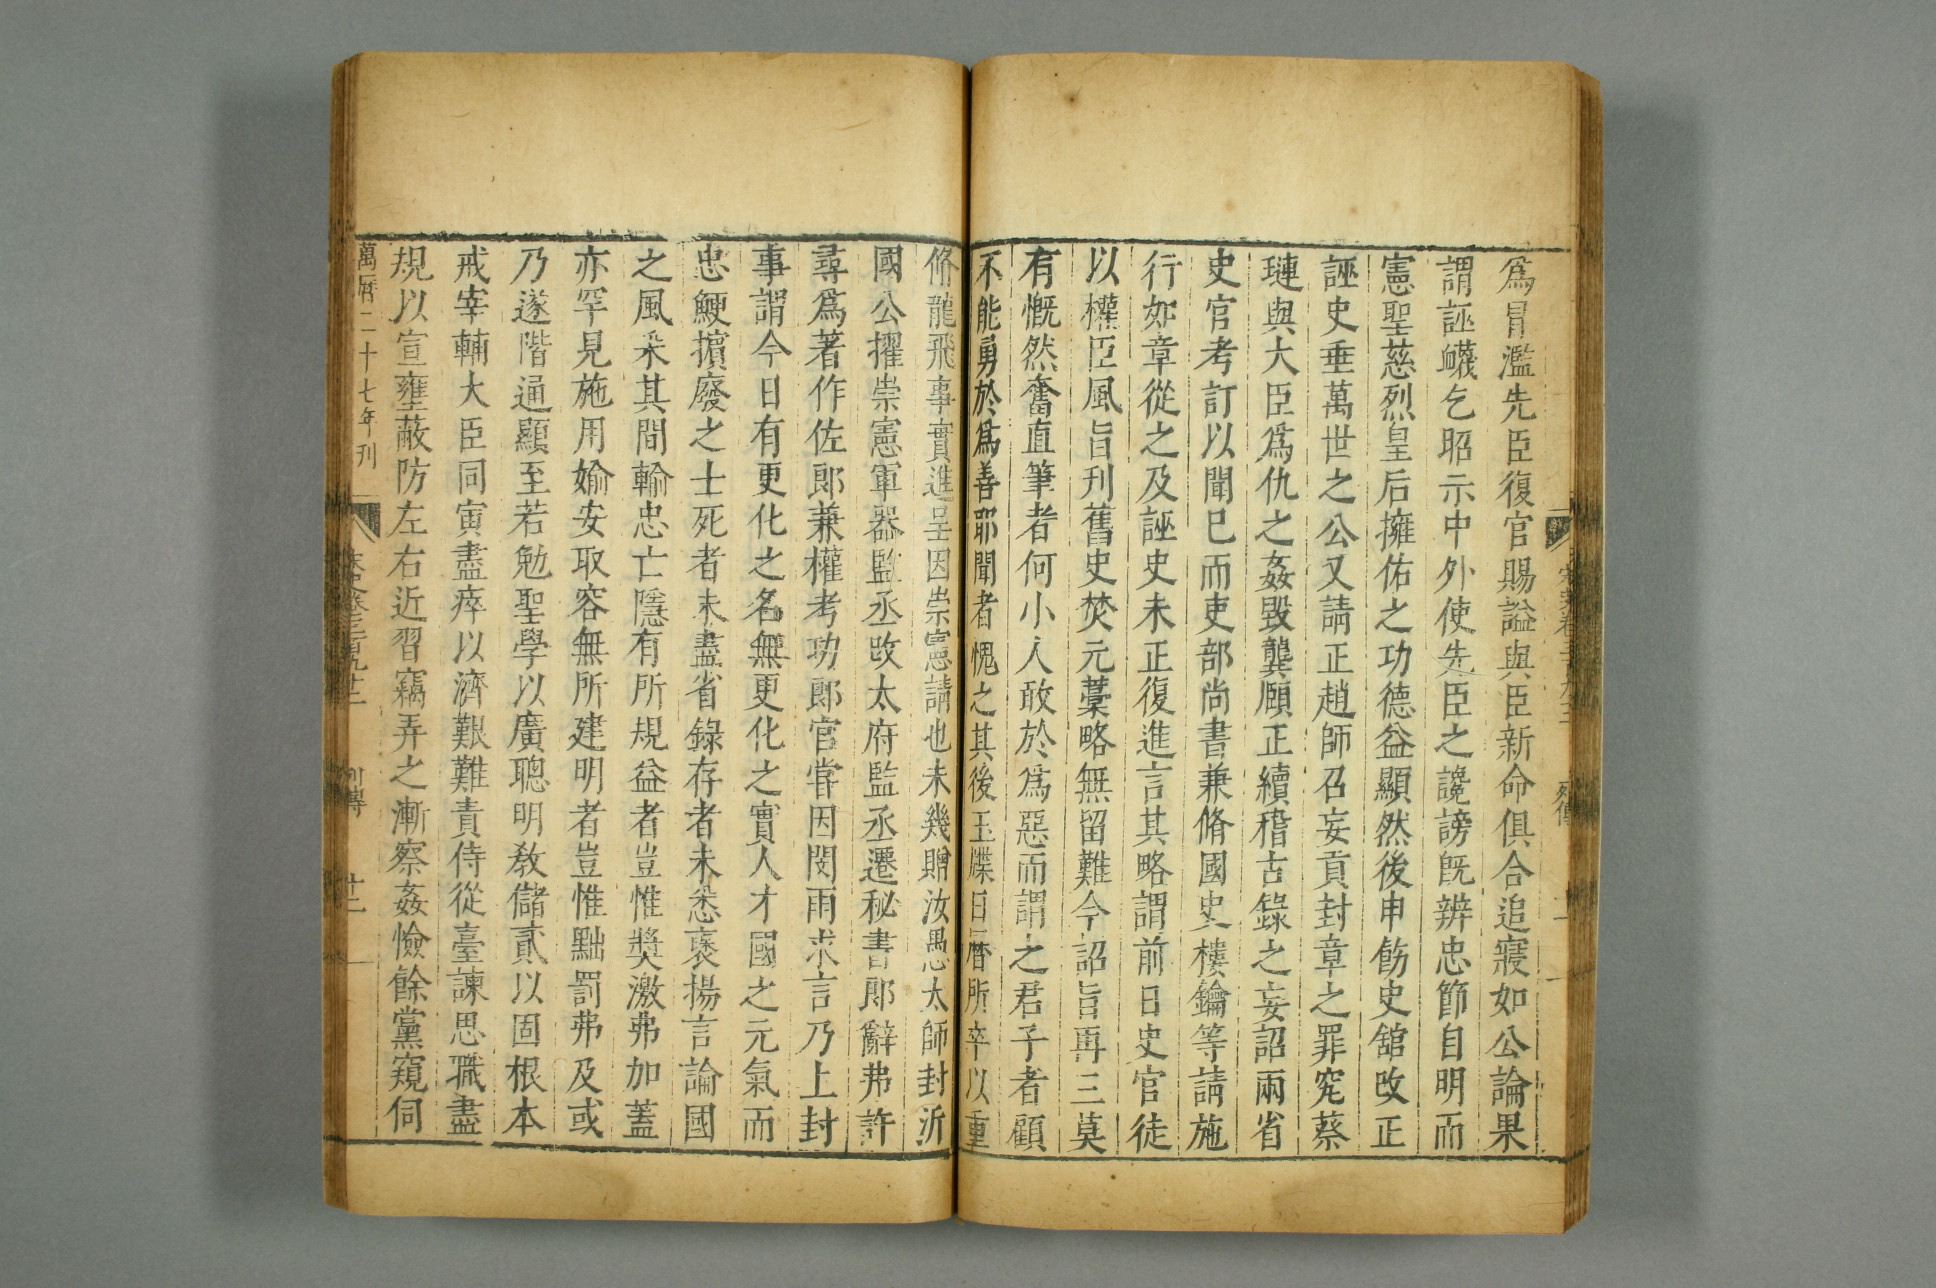 爲冒濫先臣復官賜謚與臣新命俱合追寢如公論果
謂誣衊乞昭示中外使先臣之讒謗旣辨忠節自明而
憲聖慈烈皇后擁佑之功德益顯然後申飭史舘改正
誣史垂萬世之公又請正趙師召妄貢封章之罪究蔡
璉與大臣爲仇之姦毀龔頤正續稽古錄之妄詔兩省
史官考訂以聞巳而吏部尚書兼脩國史樓鑰等請施
行如章從之及誣史未正復進言其略謂前日史官徒
以權臣風旨刋舊史焚元藁略無留難今詔旨再三莫
有慨然奮直筆者何小人敢於爲惡而謂之君子者顧
不能勇於爲善耶聞者愧之其後玉牒日曆所卒以重
脩龍飛事實進呈因崇憲請也未幾贈汝愚太師封沂
國公擢崇憲軍器監丞改太府監丞遷秘書郎辭弗許
尋爲著作佐郎兼權考功郎官嘗因閔雨求言乃上封
事謂今日有更化之名無更化之實人才國之元氣而
忠鯁擯廢之士死者未盡省錄存者未悉褒揚言論國
之風采其間輸忠亡隱有所規益者豈惟奬激弗加蓋
亦罕見施用媮安取容無所建明者豈惟黜罰弗及或
乃遂階通顯至若勉聖學以廣聰明敎儲貳以固根本
戒宰輔大臣同寅盡瘁以濟艱難責侍從臺諫思職盡
規以宣壅蔽防左右近習竊弄之漸察姦憸餘黨窺伺
萬曆二十七年刋
列傳